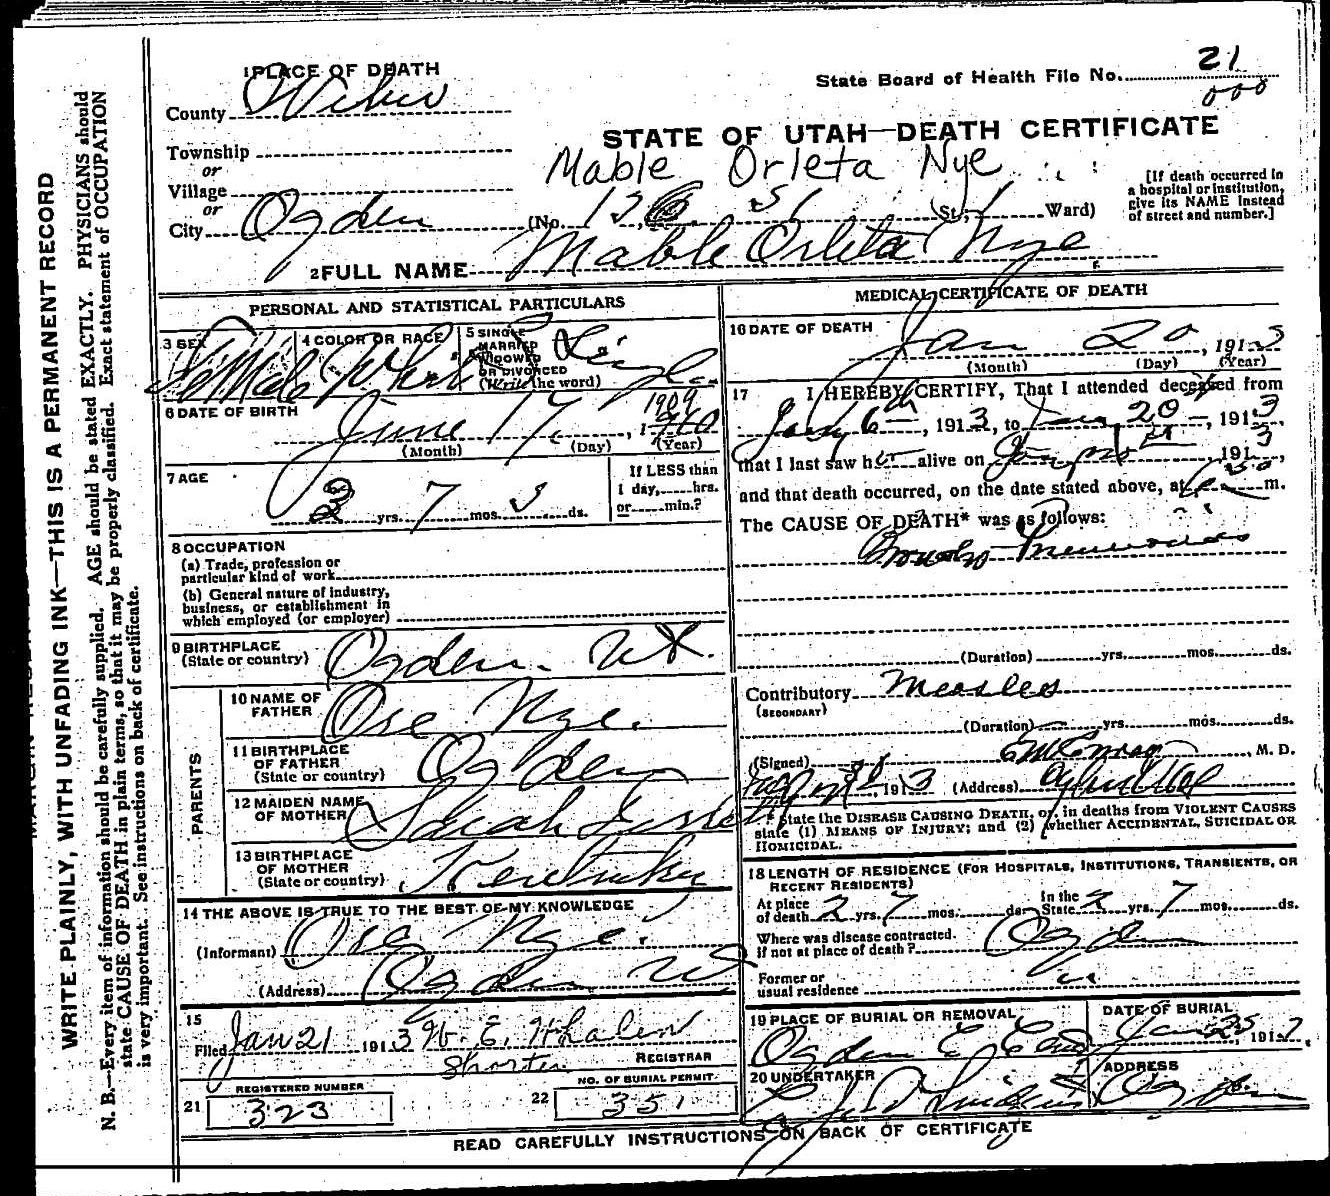 1 PLACE OF DEATH
State Board of Health File No. 21
000
County Weber
STATE OF UTAH—DEATH CERTIFICATE
Township
or
Village
or
City Ogden
Mable Orleta Nye
(No. St; 1 Ward)
[If death occurred in
a hospital or institution,
give its NAME instead
of street and number.]
2 FULL NAME Mable Orleta Nye
PERSONAL AND STATISTICAL PARTICULARS
3 SEX Female
4 COLOR OR RACE White
5 SINGLE
MARRIED
WIDOWED
OR DIVORCED
(Write the word) Single
6 DATE OF BIRTH
June 17, 1909
(Month) (Day) (Year)
7 AGE
3 yrs. 7 mos. 3 ds.
If LESS than
1 day, hrs.
or min.?
8 OCCUPATION
(a) Trade, profession or
particular kind of work
(b) General nature of industry,
business, or establishment in
which employed (or employer)
9 BIRTHPLACE
(State or country) Ogden Ut.
PARENTS
10 NAME OF
FATHER Ose Nye.
11 BIRTHPLACE
OF FATHER
(State or country) Ogden
12 MAIDEN NAME
OF MOTHER Sarah
13 BIRTHPLACE
OF MOTHER
(State or country) Kentucky
14 THE ABOVE IS TRUE TO THE BEST OF MY KNOWLEDGE
(Informant) Ose Nye.
(Address) Ogden Ut
15
Filed Jan 21 1913 W. E. Whalen
Shorten REGISTRAR
REGISTERED NUMBER
21 323
NO. OF BURIAL PERMIT
22 351
MEDICAL CERTIFICATE OF DEATH
16 DATE OF DEATH
Jan 20, 1913
(Month) (Day) (Year)
17 I HEREBY CERTIFY, That I attended deceased from
6th, 1913, to Jan 20, 1913
that I last saw her alive on 1913,
and that death occurred, on the date stated above, at m.
The CAUSE OF DEATH* was as follows:
Broncho Pneumonia
(Duration) yrs. mos. ds.
Contributory Measles
(SECONDARY)
(Duration) yrs. mos. ds.
(Signed) E M Conroy, M. D.
1913 (Address)
* State the DISEASE CAUSING DEATH, or, in deaths from VIOLENT CAUSES
state (1) MEANS OF INJURY; and (2) whether ACCIDENTAL, SUICIDAL OR
HOMICIDAL.
18 LENGTH OF RESIDENCE (FOR HOSPITALS, INSTITUTIONS, TRANSIENTS, OR
RECENT RESIDENTS)
At place
of death 2 yrs. 7 mos. ds.
In the
State 2 yrs. 7 mos. ds.
Where was disease contracted.
if not at place of death? Ogden
Former or
usual residence "
19 PLACE OF BURIAL OR REMOVAL
Ogden
DATE OF BURIAL
Jan 25, 191
20 UNDERTAKER
ADDRESS
Ogden
READ CAREFULLY INSTRUCTIONS ON BACK OF CERTIFICATE
WRITE PLAINLY, WITH UNFADING INK—THIS IS A PERMANENT RECORD
N. B.—Every item of information should be carefully supplied. AGE should be stated EXACTLY. PHYSICIANS should
state CAUSE OF DEATH in plain terms, so that it may be properly classified. Exact statement of OCCUPATION
is very important. See instructions on back of certificate.